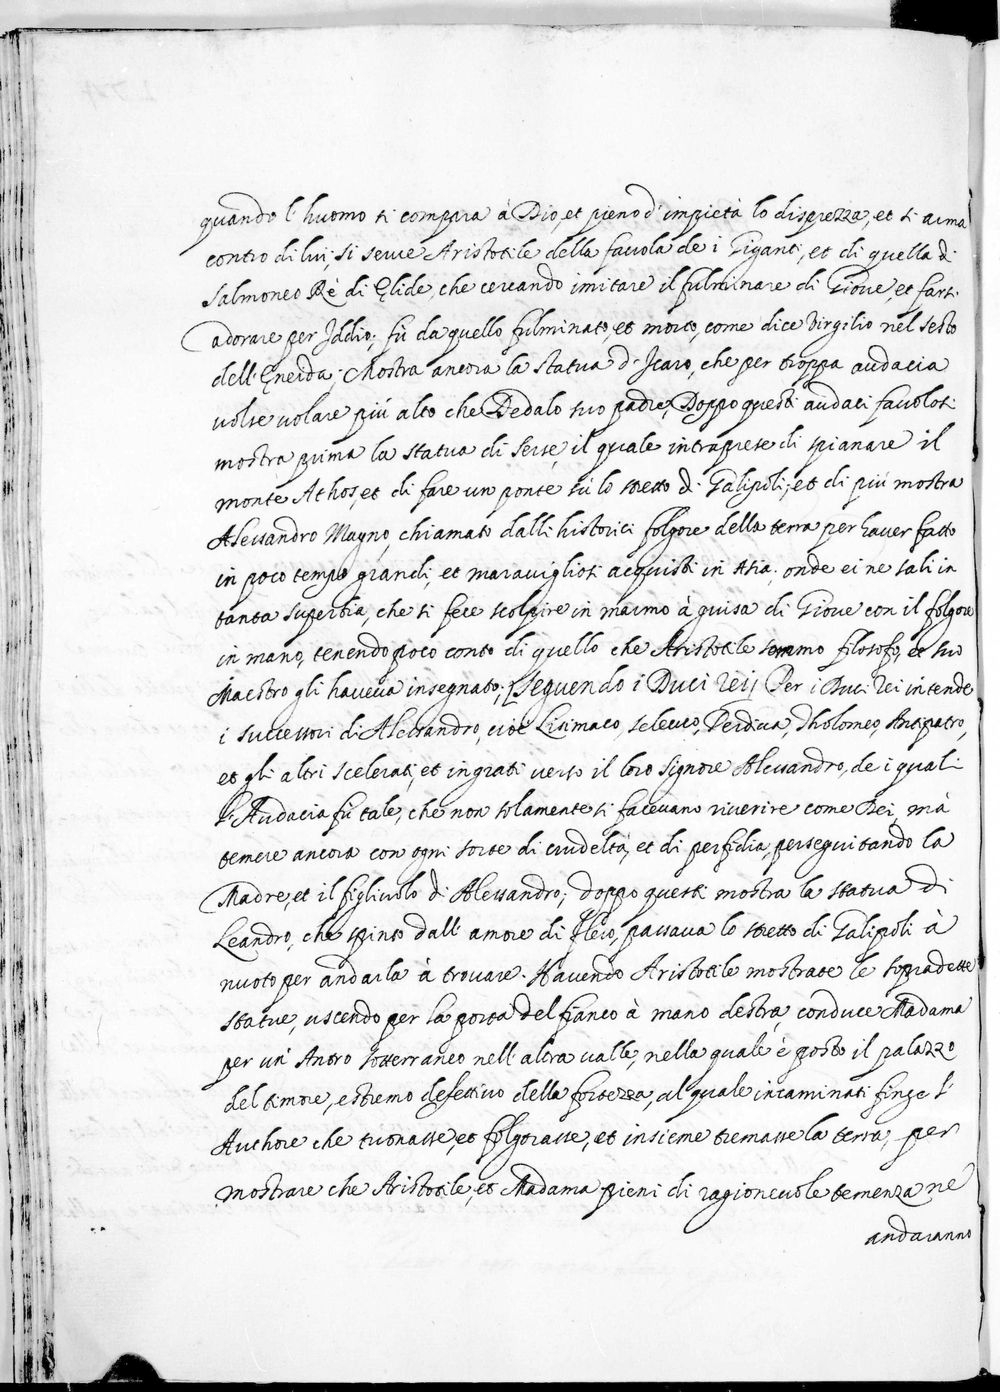 quando l'huomo si compara à Dio, et pieno d'impietà lo disprezza, et si arma
contro di lui, si serue Aristotile della fauola de i Giganti, et di quella di
Salmoneo Rè di Elide, che cercando imitare il fulminare di Gioue, et farsi
adorare per Iddio, fù da quello fulminato, et morto, come dice Virgilio nel sesto
dell'Eneida; Mostra ancora la statua d'Icaro, che per troppa audacia
volse volare più alto che Dedalo suo padre, Doppo questi audaci fauolosi
mostra prima la statua di Serse, il quale intraprese di spianare il
monte Athos, et di fare un ponte sù lo stretto di Galipoli, et di più mostra
Alessandro Magno, chiamato dalli historici folgore della terra per hauer fatto
in poco tempo grandi, et marauigliosi acquisti in Asia. onde ei ne salì in
tanta superbia, che si fece scolpire in marmo à guisa di Gioue con il folgore
in mano, tenendo poco conto di quello che Aristotile sommo filosofo, et suo
Maestro gli haueua insegnato; [seguendo i Duci rei] Per i Duci rei intende
i successori di Alessandro, cioè Lisimaco, seleuco, Perdica, Tholomeo, Antipatro,
et gli altri scelerati, et ingrati verso il loro signore Alessandro, de i quali
l'Audacia fù tale, che non solamente si faceuano riuerire come Dei, mà
temere ancora con ogni sorte di crudeltà, et di perfidia, perseguitando la
Madre, et il figliuolo di Alessandro; doppo questi mostra la statua di
Leandro, che spinto dall'amore di Hero, passaua lo stretto di Galipoli à
nuoto per andarla à trouare. Hauendo Aristotile mostrate le sopradette
statue, uscendo per la porta del fianco à mano destra, conduce Madama
per un'Antro sotterraneo nell'altra ualle, nella quale è posto il palazzo
del timore, estremo defettiuo della fortezza, al quale incaminati finge l'
Authore che tuonasse, et folgorasse, et insieme tremasse la terra, per
mostrare che Aristotile, et Madama pieni di ragioneuole temenza ne
andaranno